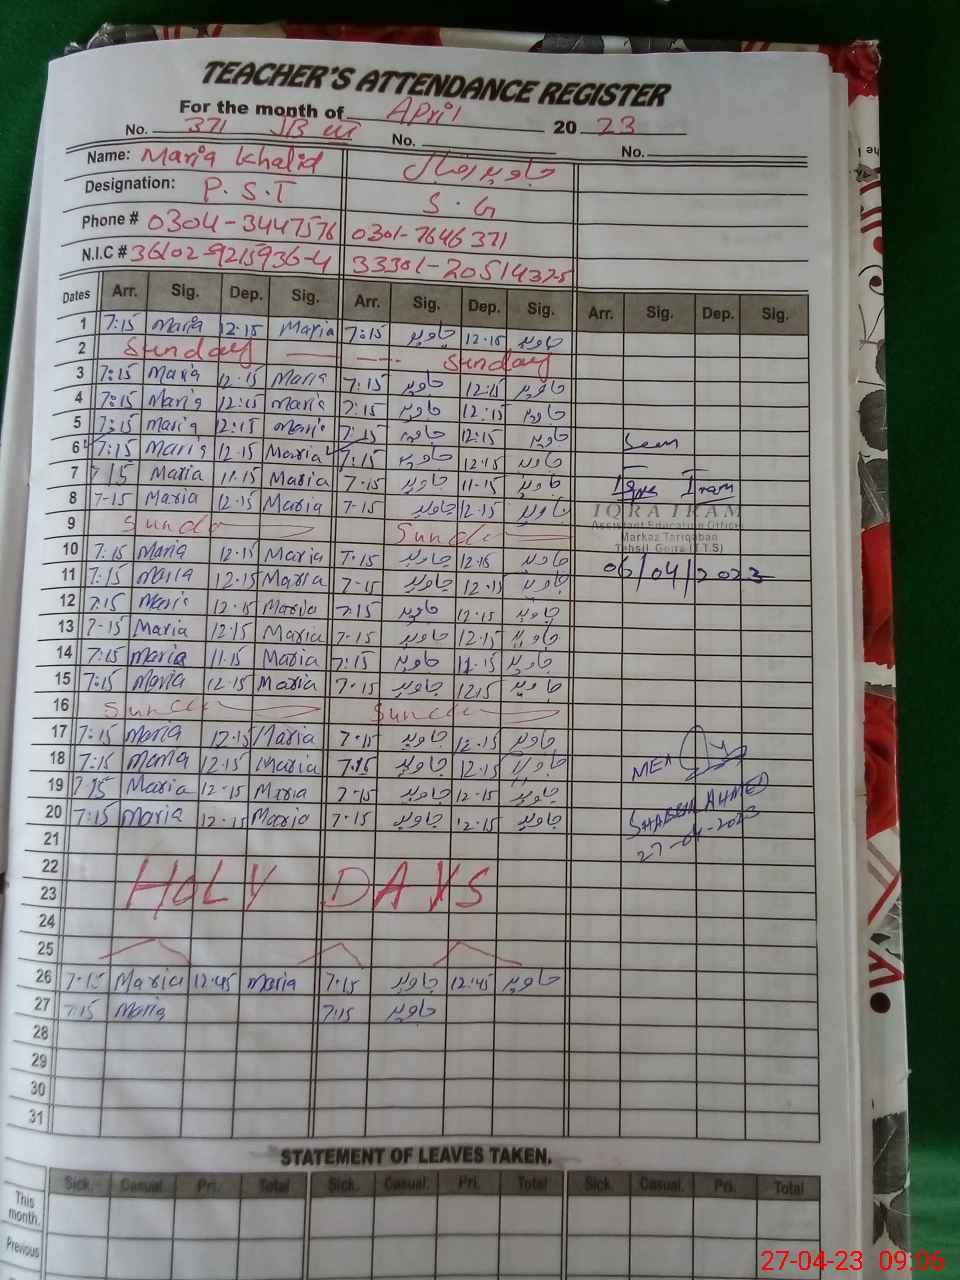 TEACHER'S ATTENDANCE REGISTER
For the month of April 20 23
No. 371 JB No. No.
Name: Maria Khalid جاوید
Designation: P.S.T S.G
Phone # 0304-3447576 0301-7646371
N.I.C # 36102-9215936-4 33301-20514325
Dates Arr. Sig. Dep. Sig. Arr. Sig. Dep. Sig. Arr. Sig. Dep. Sig.
1 7:15 Maria 12.15 Maria 7:15 جاوید 12.15 جاوید
2 Sunday Sunday
3 7:15 Maria 12:15 Maria 7:15 جاوید 12:15 جاوید
4 7:15 Maria 12:15 Maria 7:15 جاوید 12:15 جاوید
5 7:15 Maria 12:15 Maria 7:15 جاوید 12:15 جاوید Seen
6 7:15 Maria 12.15 Maria 7:15 جاوید 12.15 جاوید
7 7:15 Maria 11.15 Maria 7.15 جاوید 11.15 جاوید Iqra Iram
8 7-15 Maria 12.15 Maria 7-15 جاوید 12.15 جاوید IQRA IRAM
Assistant Education Officer
9 Sunda Sunda Markaz Tariqabad
Tehsil Gojra (T.T.S)
10 7:15 Maria 12.15 Maria 7.15 جاوید 12.15 جاوید 06/04/2023
11 7:15 Maria 12.15 Maria 7-15 جاوید 12.15 جاوید
12 7.15 Maria 12.15 Maria 7.15 جاوید 12.15 جاوید
13 7-15 Maria 12.15 Maria 7-15 جاوید 12.15 جاوید
14 7:15 Maria 11.15 Maria 7:15 جاوید 11.15 جاوید
15 7:15 Maria 12.15 Maria 7.15 جاوید 12.15 جاوید
16 Sun Sun
17 7:15 Maria 12.15 Maria 7.15 جاوید 12.15 جاوید
18 7:15 Maria 12.15 Maria 7.15 جاوید 12.15 جاوید MEA
19 7:15 Maria 12.15 Maria 7-15 جاوید 12.15 جاوید
20 7:15 Maria 12.15 Maria 7.15 جاوید 12.15 جاوید AHMED
21 27-04-2023
22
HOLY DAYS
23
24
25
26 7.15 Maria 12.45 Maria 7.15 جاوید 12.45 جاوید
27 7:15 Maria 7:15 جاوید
28
29
30
31
STATEMENT OF LEAVES TAKEN.
Sick. Casual. Pri. Total Sick. Casual. Pri. Total Sick. Casual. Pri. Total
This month.
Previous
27-04-23 09:06